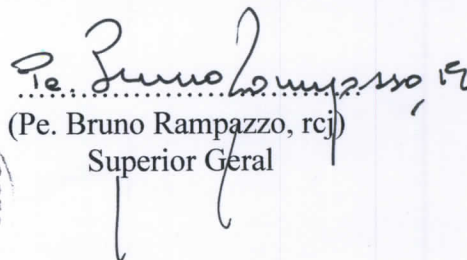 Pe. Bruno Rampazzo, rcj
(Pe. Bruno Rampazzo, rcj)
Superior Geral